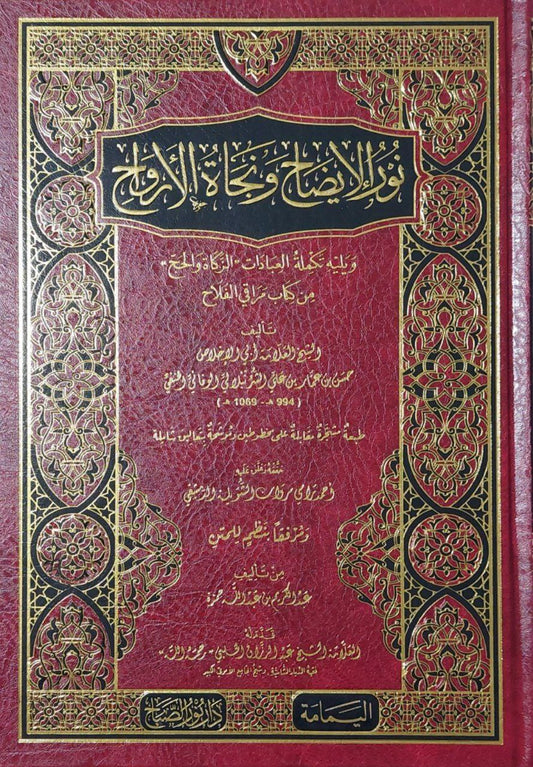 نُورُ الإِيضَاحِ وَنَجَاةُ الأَرْوَاحِ
وَيَلِيْهِ تَكْمِلَةُ العِبَادَاتِ «الزَّكَاةُ وَالحَجّ»
مِنْ كِتَابِ مَرَاقِي الفَلَاحِ
تَأليف
الشيخ العَلّامَة أبي الإخلاص
حسَن بن عمّار بن علي الشرُنبُلَالي الوفائي الحنفيّ
( 994 هـ - 1069 هـ )
طبعة مشجّرة مقابلة على مخطوطين ومُوشّحة بتعاليق شاملة
حَقّقهُ وَعَلّق عَليه
أحمد رَامي مروان الشويكية الدّمشقي
وَمُرْفَقًا بِنَظْمٍ لِلمَتْنِ
مِن تَأليف
عَبد الكريم بن عَبد اللّه حمزة
قَدّمَ لَهُ
العَلّامَة الشيخ عَبد الرزّاق الحَلَبي «رحمَهُ اللّه»
وشيخ الجامع الأموي الكبير
اليَمامَة
دَار نُور الصَّبَاح